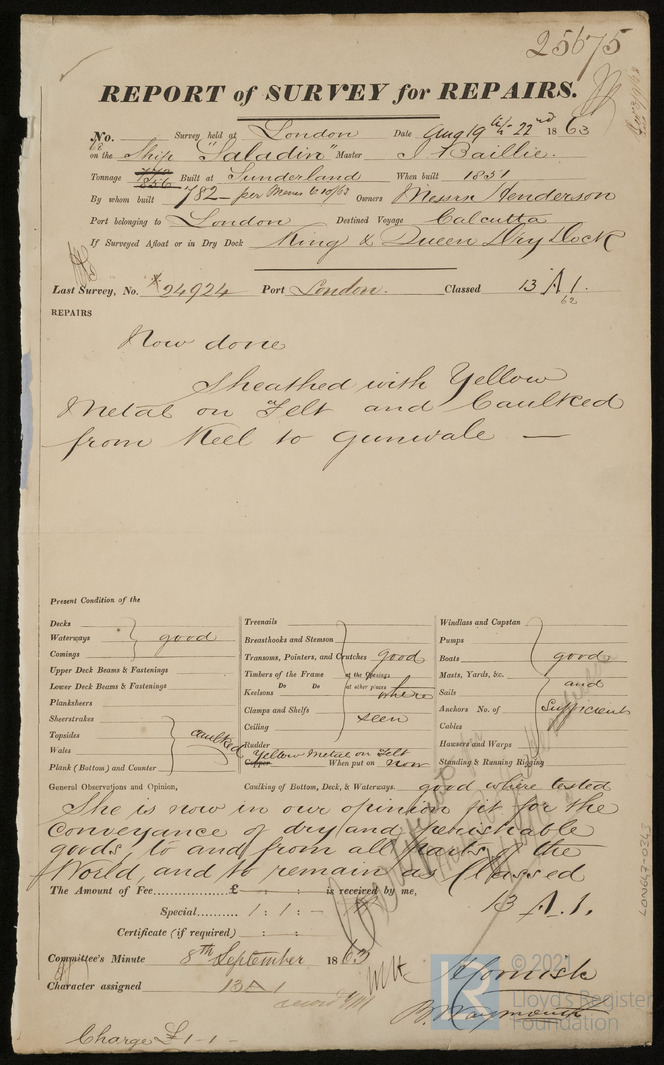 25675
REPORT of SURVEY for REPAIRS.
No. Survey held at London Date Aug 19th - 22nd 1863
on the Ship "Saladin" Master J Baillie.
Tonnage 856 Built at Sunderland When built 1851
By whom built 782 - per Owners Messrs Henderson
Port belonging to London Destined Voyage Calcutta
If Surveyed Afloat or in Dry Dock King & Queen Dry Dock
Last Survey, No. *24924 Port London. Classed 13 A 1.
62
REPAIRS
Now done
Sheathed with Yellow
Metal on Felt and Caulked
from Keel to Gunwale —
Present Condition of the
Decks
Waterways good
Comings
Upper Deck Beams & Fastenings
Lower Deck Beams & Fastenings
Planksheers
Sheerstrakes
Topsides caulked
Wales
Plank (Bottom) and Counter
Treenails
Breasthooks and Stemson
Transoms, Pointers, and Crutches good
Timbers of the Frame at the Openings
Do Do at other places where
Keelsons
Clamps and Shelfs seen
Ceiling
Rudder
Yellow Metal on Felt
Copper When put on now
Windlass and Capstan
Pumps
Boats good
Masts, Yards, &c. and
Sails
Anchors No. of Sufficient
Cables
Hawsers and Warps
Standing & Running Rigging
General Observations and Opinion, Caulking of Bottom, Deck, & Waterways. good where tested
She is now in our opinion fit for the
Conveyance of dry and perishable
goods, to and from all parts of the
World, and to remain as Classed
13 A.1.
The Amount of Fee £ : : is received by me,
Special 1 : 1 : -
Certificate (if required) : :
Committee's Minute 8th September 1863
Character assigned 13 A 1
Charge £1-1-
LON647-0343
© 2021
Lloyd's Register
Foundation